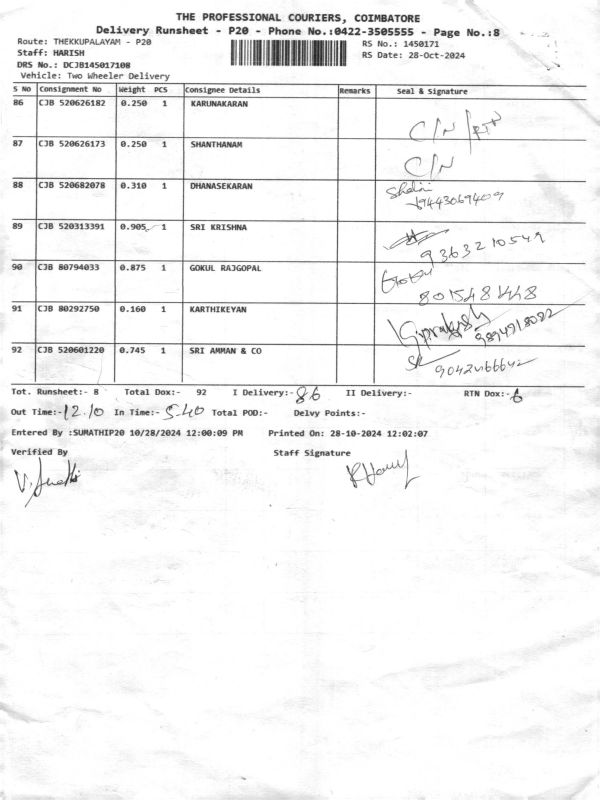 THE PROFESSIONAL COURIERS, COIMBATORE
Delivery Runsheet - P20 - Phone No.:0422-3505555 - Page No.:8
Route: THEKKUPALAYAM - P20 RS No.: 1450171
Staff: HARISH RS Date: 28-Oct-2024
DRS No.: DCJB145017108
Vehicle: Two Wheeler Delivery
S No Consignment No Weight PCS Consignee Details Remarks Seal & Signature
86 CJB 520626182 0.250 1 KARUNAKARAN C/N/RTN
87 CJB 520626173 0.250 1 SHANTHANAM C/N
88 CJB 520682078 0.310 1 DHANASEKARAN Shalini
9443069409
89 CJB 520313391 0.905 1 SRI KRISHNA
9363210549
90 CJB 80794033 0.875 1 GOKUL RAJGOPAL
8015481448
91 CJB 80292750 0.160 1 KARTHIKEYAN
9894918082
92 CJB 520601220 0.745 1 SRI AMMAN & CO
Tot. Runsheet:- 8 Total Dox:- 92 I Delivery:- 86 II Delivery:- RTN Dox:- 6
Out Time:- 12.10 In Time:- 5.40 Total POD:- Delvy Points:-
Entered By :SUMATHIP20 10/28/2024 12:00:09 PM Printed On: 28-10-2024 12:02:07
Verified By Staff Signature